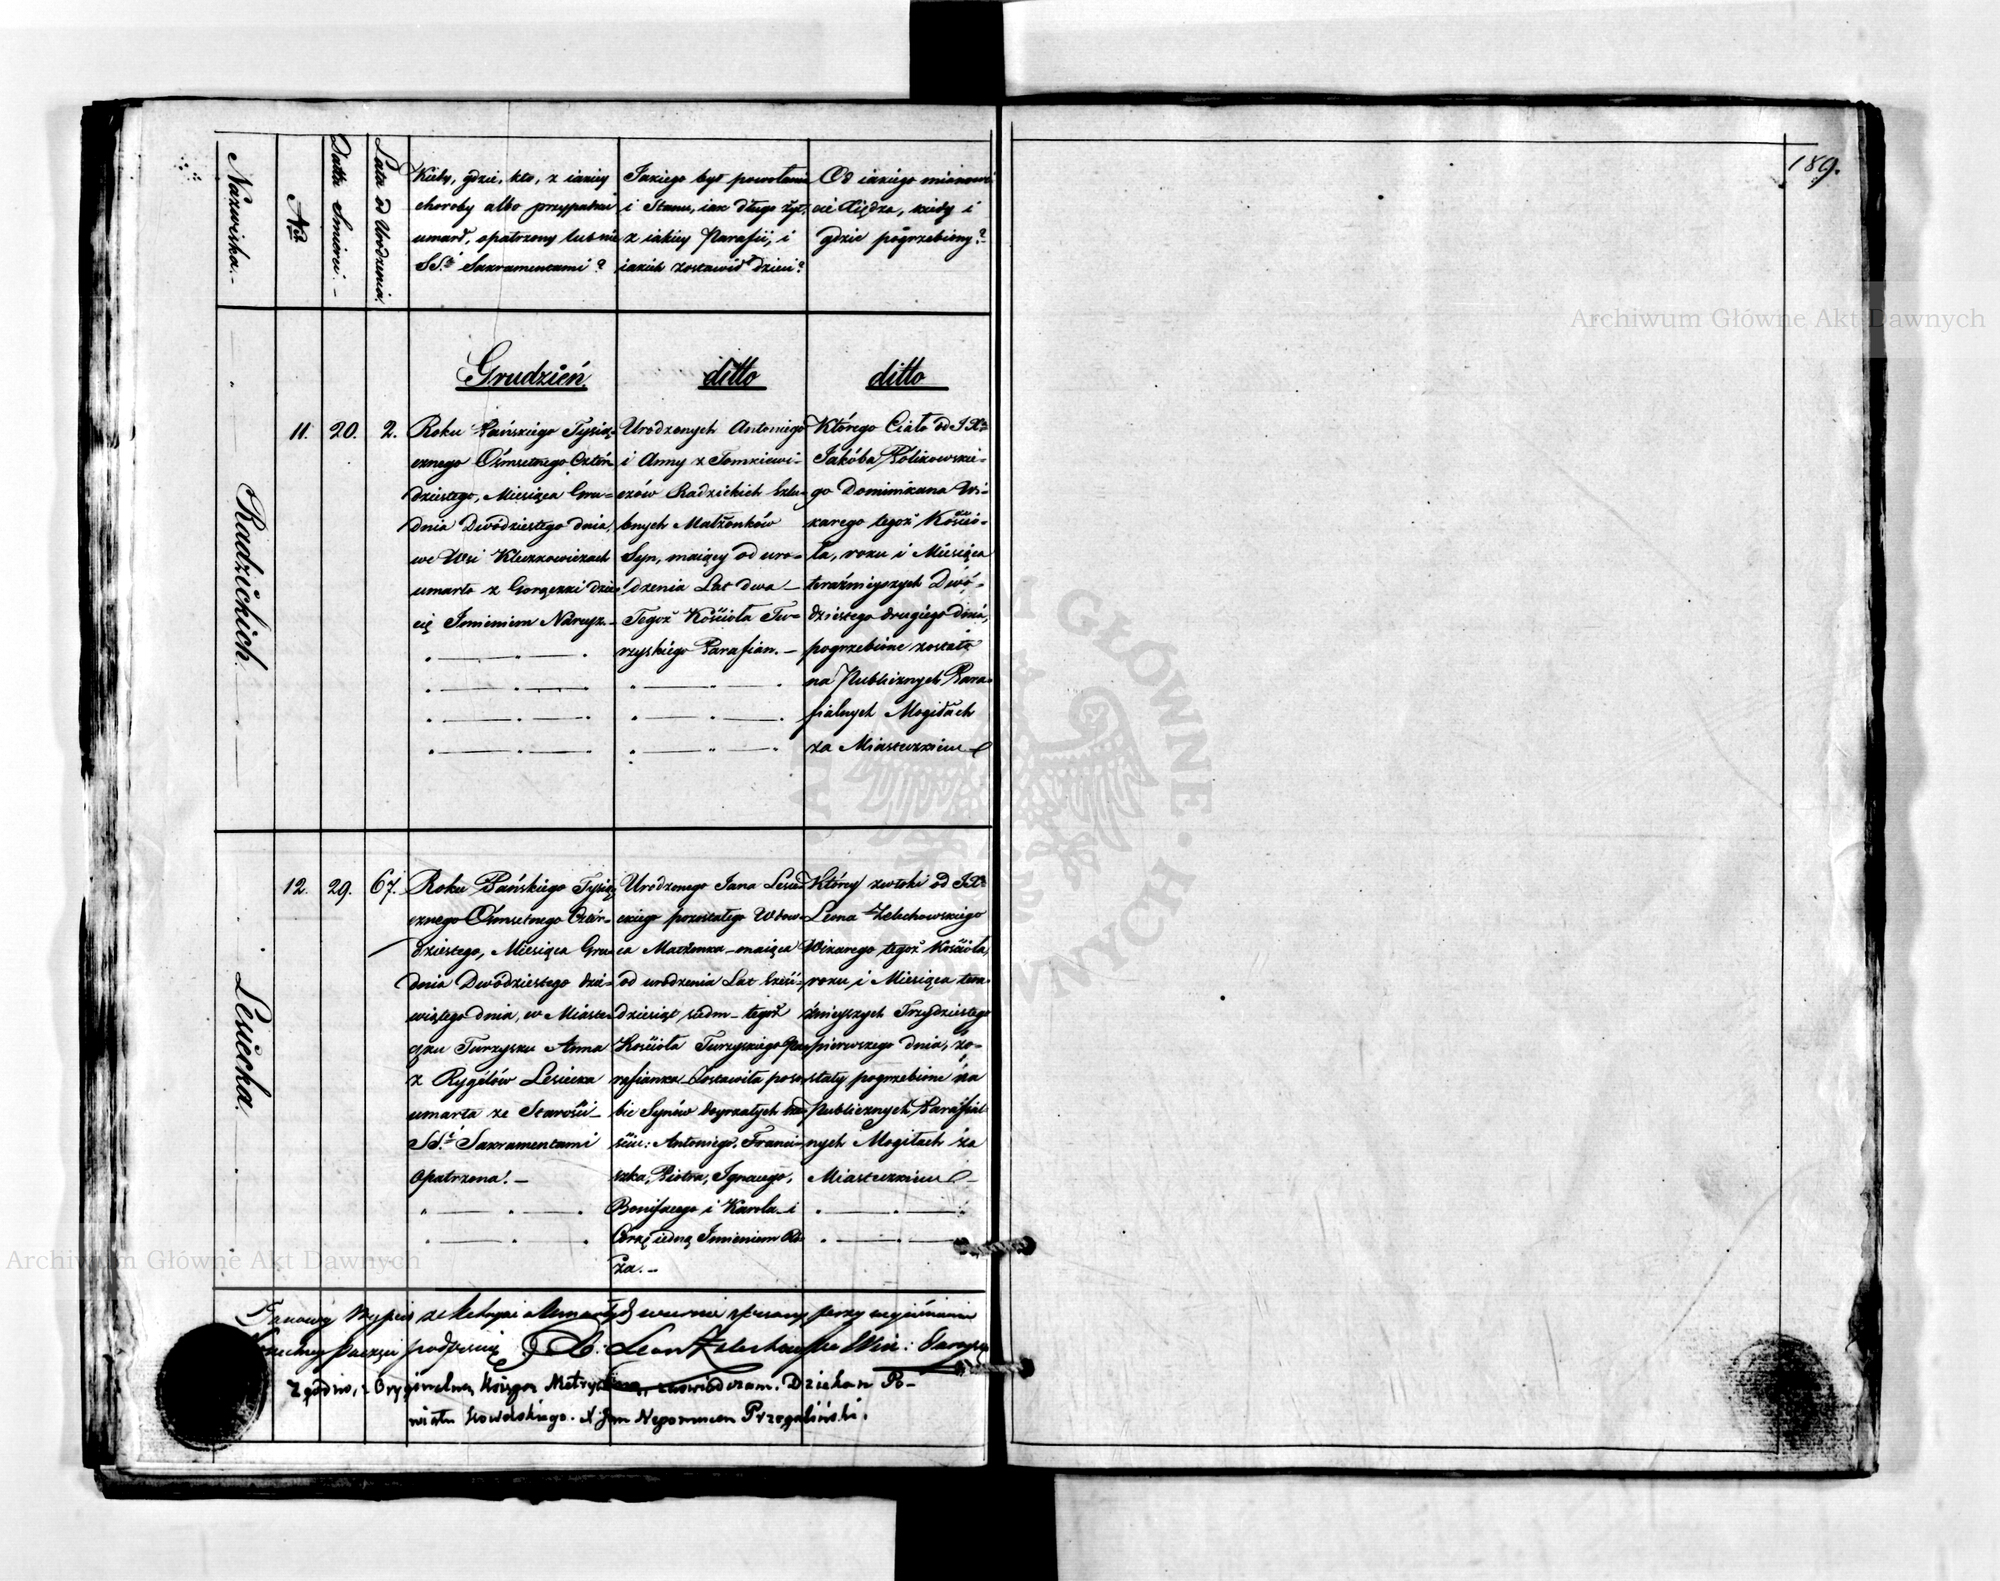 189.
Nazwiska.
No
Datta Smierci.
Lata od Urodzenia.
Kiedy, gdzie, kto, z iakiey
choroby albo przypadku
umarł, opatrzony lub nie
SS. Sakramentami?
Jakiego był powołania
i Stanu, iak długo żył,
z iakiey Parafii, i
iakich zostawił dzieci?
Od iakiego mianowi
cie Xiędza, kiedy i
gdzie pogrzebiony?
Grudzień
ditto
ditto
Radzickich.
11.
20.
2.
Roku Pańskiego Tysią
cznego Ośmsetnego Czter
dziestego, Miesiąca Gru-
dnia Dwódziestego dnia,
we Wsi Kluzkowiczach
umarło z Gorączki dzie
cię Imieniem Narcyz.
Urodzonych Antoniego
i Anny z Tomkiewi-
czów Radzickich Szlu-
bnych Małżonków
Syn, maiący od uro-
dzenia Lat dwa
Tegoż Kościoła Tu-
rzyskiego Parafian.
Którego Ciało od JX
Jakóba Polikowskie-
go Dominikana Wi-
karego tegoż Kościo-
ła, roku i Miesiąca
teraźnieyszych Dwó-
dziestego drugiego dnia,
pogrzebione zostało
na Publicznych Para-
fialnych Mogiłach
za Miasteczkiem
Lesiecka.
12.
29.
67.
Roku Pańskiego Tysią
cznego Ośmsetnego Czter-
dziestego, Miesiąca Gru
dnia Dwódziestego dzie-
wiątego dnia, w Miaste
czku Turzysku Anna
z Rygélów Lesiecka
umarła ze Starości
SS. Sakramentami
opatrzona.
Urodzonego Jana Lesie
ckiego pozostałego Wdow-
ca Małżonka maiąca
od urodzenia Lat Sześć-
dziesiąt siedm tegoż
Kościoła Turzyskiego Pa
rafianka Zostawiła poso
bie Synów doyrzałych
Antoniego, Franci
szka, Piotra, Ignacego,
Bonifacego i Karola i
Corkę iedną Imieniem Ró
ża.
Którey zwłoki od JX
Leona Żelechowskiego
Wikarego tegoż Kościoła,
roku i Miesiąca tera
źnieyszych Trzydziestego
pierwszego dnia, zo-
stały pogrzebione na
Publicznych Parafial
nych Mogiłach za
Miasteczkiem
Wypis z Metryki o Umarłych wiernie spisany przy wyciśnieniu
pieczęci podpisuię X. Leon Żelechowski Wik:
Zgodno, z Oryginalną Księgą Metryczną, zaświadczam. Dziekan Po-
wiatu Kowelskiego. X Jan Nepomucen Przegaliński.
Archiwum Główne Akt Dawnych
Archiwum Główne Akt Dawnych